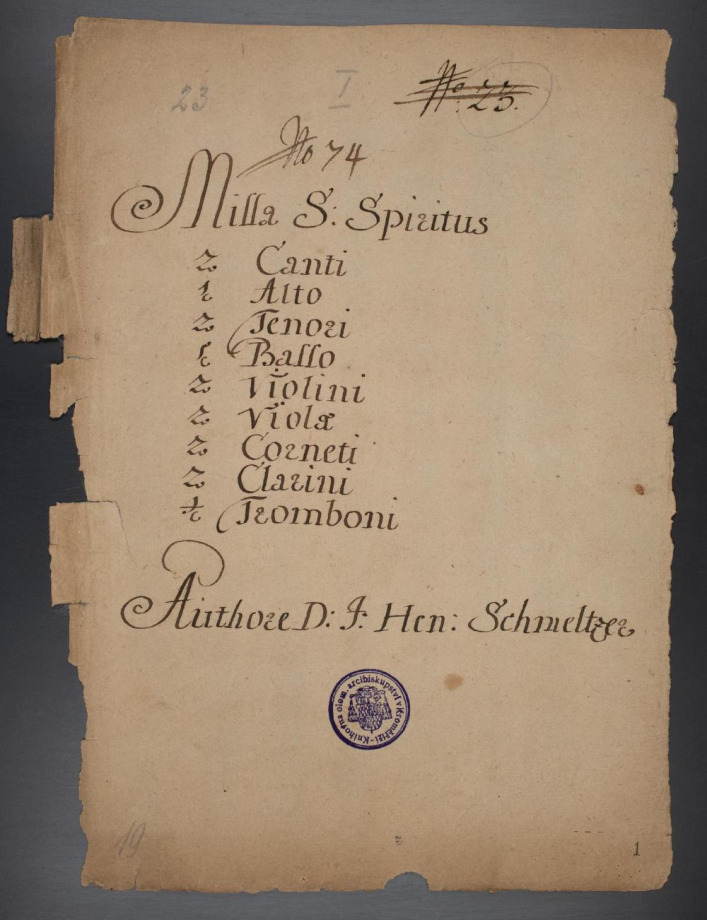 23 I No. 23.
No 74
Missa S: Spiritus
2 Canti
1 Alto
2 Tenori
1 Basso
2 Violini
2 Violæ
2 Corneti
2 Clarini
4 Tromboni
Authore D: J: Hen: Schmeltzer
Knihovna olom. arcibiskupství v Kroměříži
19
1